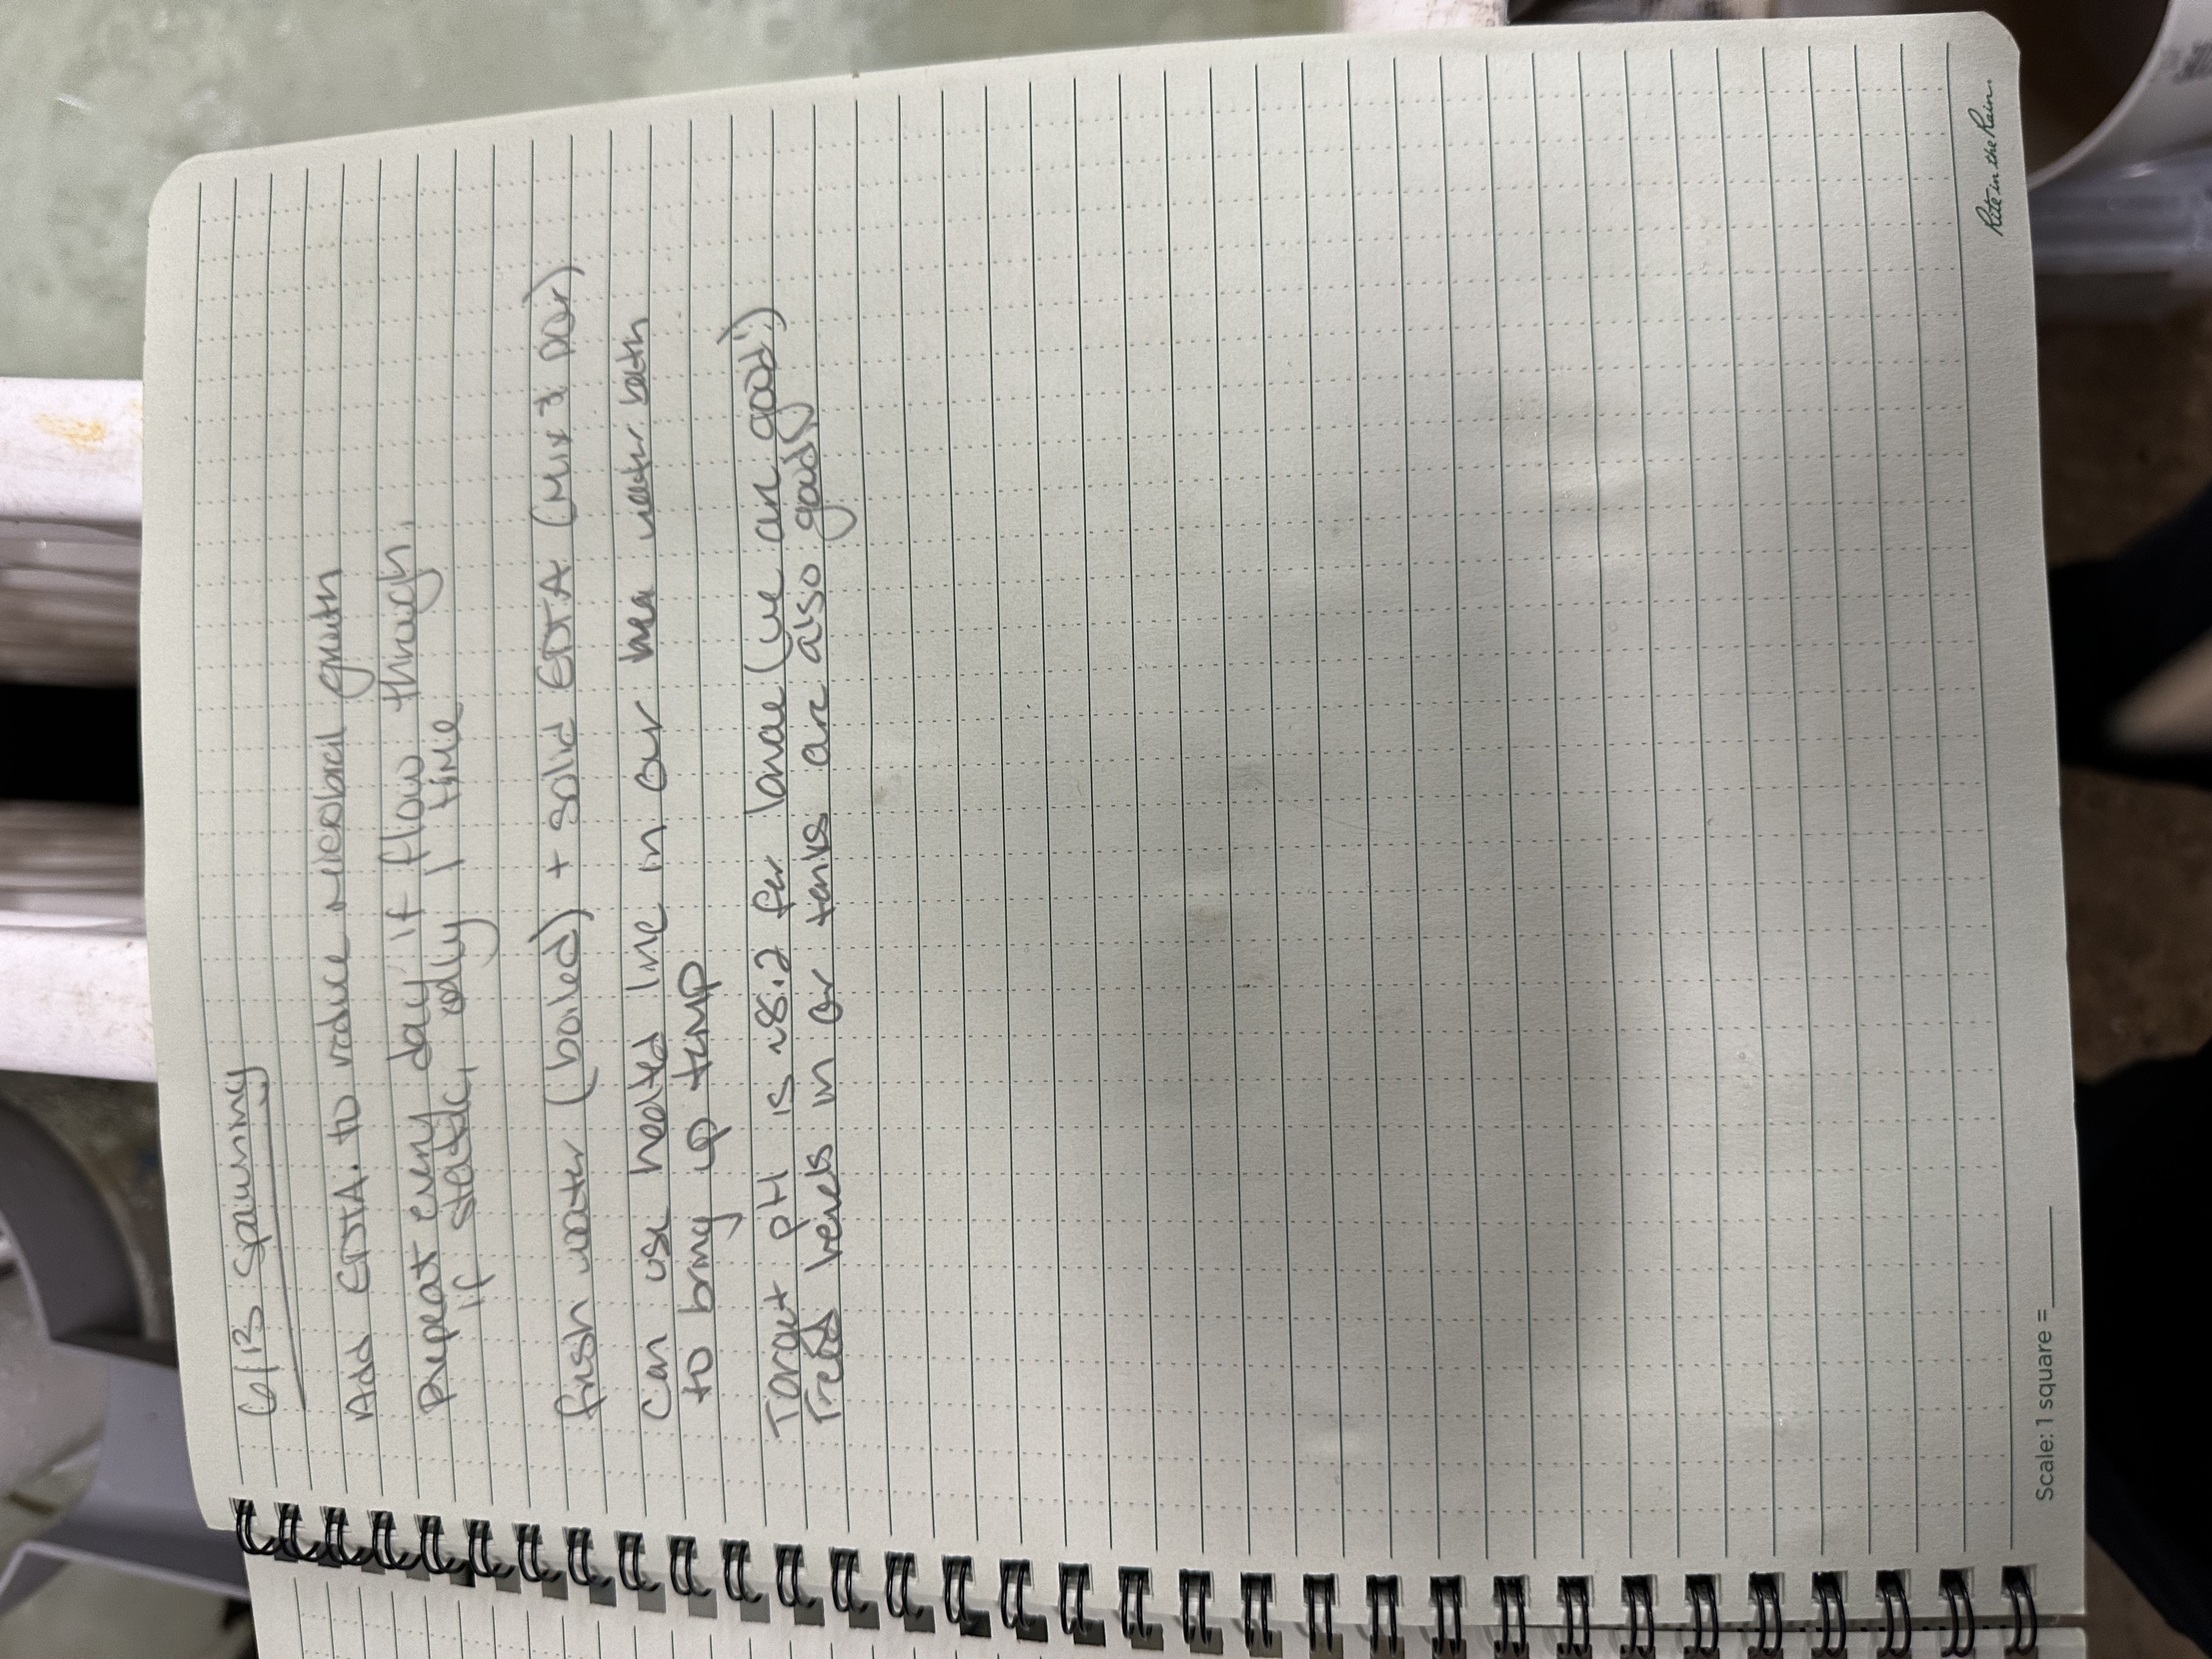 6/13 spawning
Add EDTA. to reduce microbial growth
Repeat every day if flow through,
if static, only 1 time
fresh water (boiled) + solid EDTA (Mix & pour)
Can use heated line in our water bath
to bring up temp
Target pH is ~8.2 for larvae (we are good!)
Feed levels in our tanks are also good
Rite in the Rain.
Scale: 1 square =